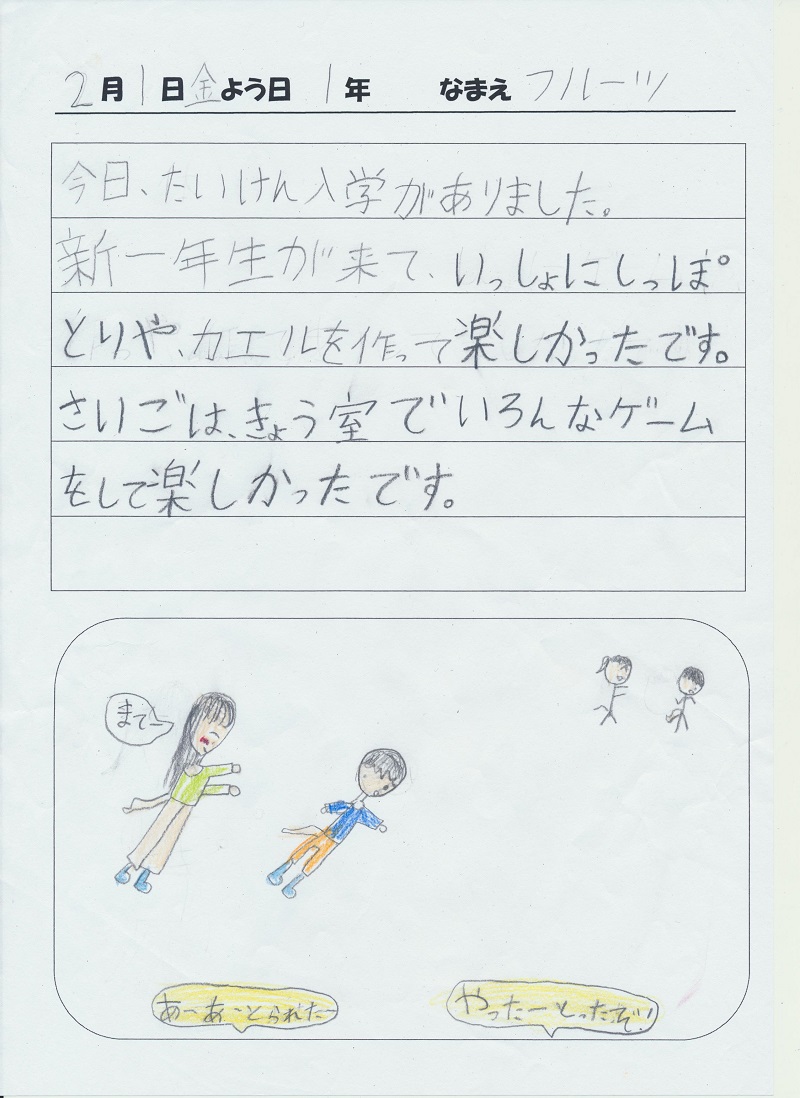 2月1日金よう日 1年 なまえ フルーツ
今日、たいけん入学がありました。
新一年生が来て、いっしょにしっぽ
とりや、カエルを作って楽しかったです。
さいごは、きょう室でいろんなゲーム
をして楽しかったです。
まてー
あーあーとられたー
やったーとったぞ!